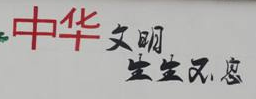 中华文明
生生不息